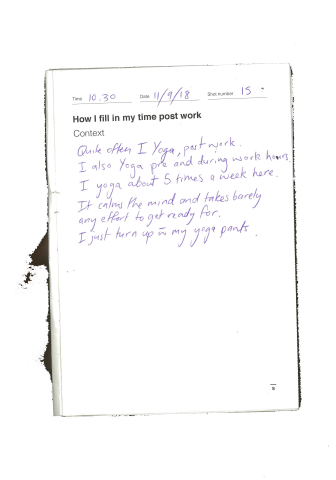 Time 10.30 Date 11/9/18 Shot number 15
How I fill in my time post work
Context
Quite often I Yoga, post work.
I also Yoga pre and during work hours.
I yoga about 5 times a week here.
It calms the mind and takes barely
any effort to get ready for.
I just turn up in my yoga pants.